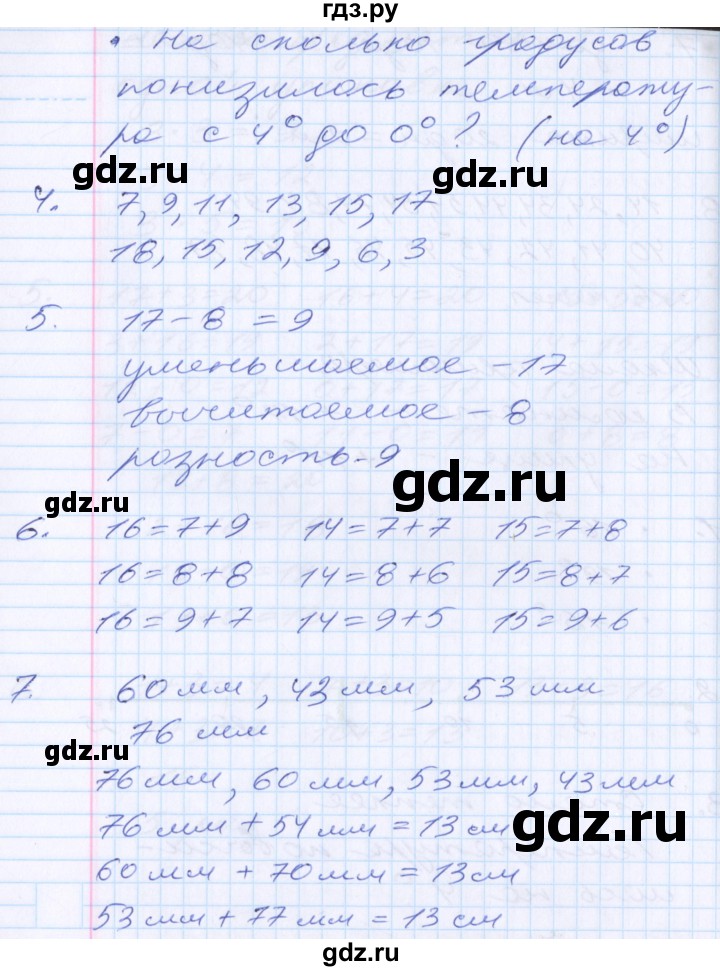 гдз.ру
• На сколько градусов
понизилась температу-
ра с 4° до 0°? (на 4°)
gdz.ru
gdz.ru
4. 7, 9, 11, 13, 15, 17
18, 15, 12, 9, 6, 3
5. 17 - 8 = 9
уменьшаемое - 17
вычитаемое - 8
разность - 9
gdz.ru
gdz.ru
6. 16 = 7 + 9 14 = 7 + 7 15 = 7 + 8
16 = 8 + 8 14 = 8 + 6 15 = 8 + 7
16 = 9 + 7 14 = 9 + 5 15 = 9 + 6
7. 60 мм, 43 мм, 53 мм
76 мм
gdz.ru
76 мм, 60 мм, 53 мм, 43 мм
76 мм + 54 мм = 13 см
gdz.ru
60 мм + 70 мм = 13 см
53 мм + 77 мм = 13 см
gdz.ru